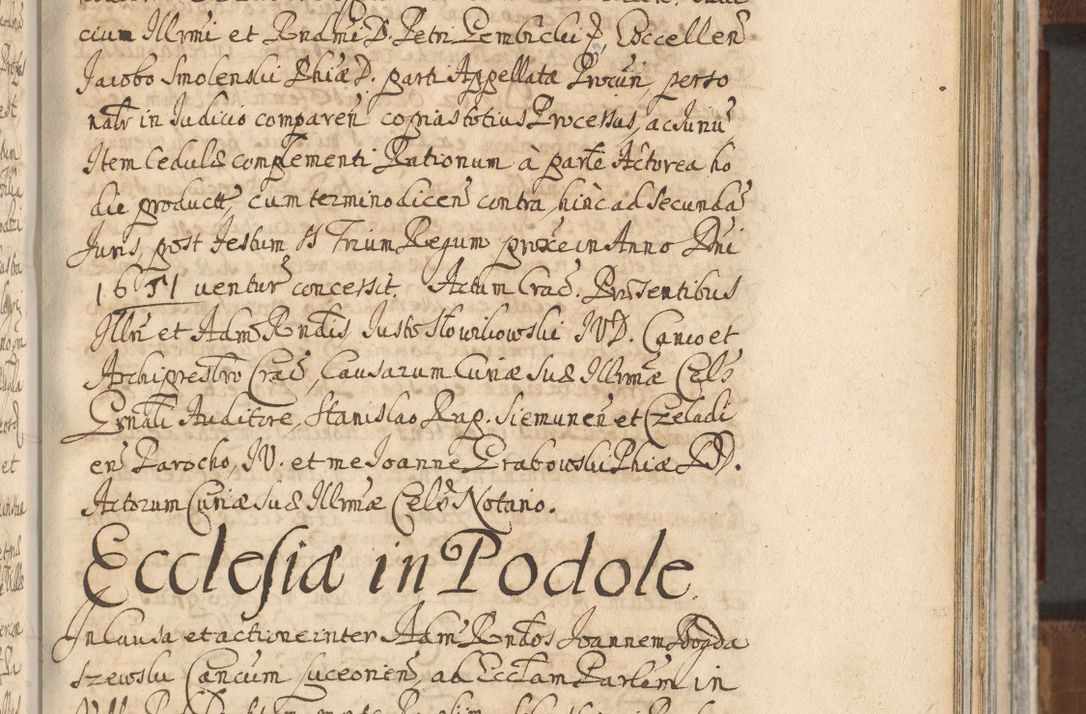 cium Illrmi et Rndmi D. Petri Gembicki P, Eoccellen
Jacobo Smolenski Phiæ D. parti Appellatæ Procuri, perso
nalr in Judicio comparen copias totius Processus, ac Junu
Item Cedulæ complementi Rationum à parte Actorea ho
die product, cum termino dicen contra, hinc ad Secunda
Juris, post Festum SS Trium Regum proxe in Anno Dni
1651 ventur concessit. Actum Crac. Præsentibus
Illri et Adm Rndis, Justo Słowikowski JVD. Canco et
Archipresbro Crac, Causarum Curiæ suæ Illrmæ Cels
Grnali Auditore, Stanislao Rag. Siemunen et Czeladi
en Parocho, JV. et me Joanne Grabowski Phiæ D.
Actorum Curiæ suæ Illrmæ Cels Notario.
Ecclesiæ in Podole.
In causa et actione inter Adm Rndos Joannem Bogda
szewski Cancum suceorien, ad Ecclam Parlem in